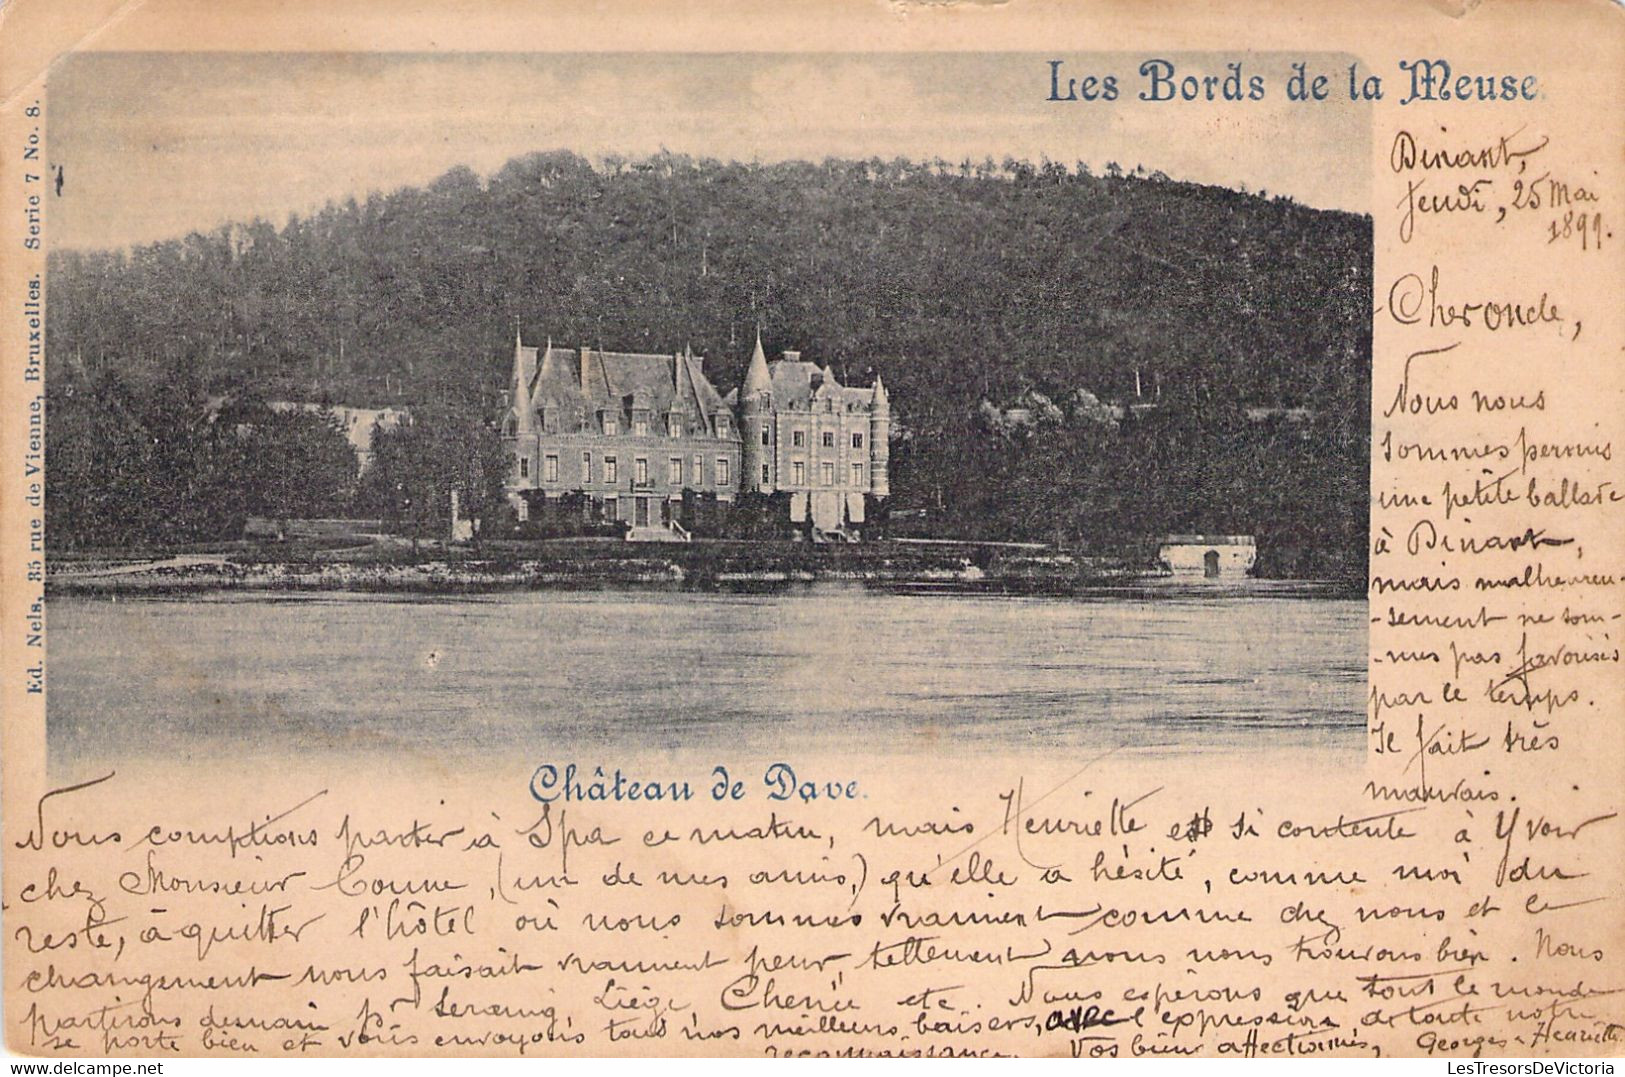 Les Bords de la Meuse.
Ed. Nels, 85 rue de Vienne, Bruxelles. Serie 7 No. 8.
Dinant,
Jeudi, 25 Mai
1899.
Cher oncle,
Nous nous
sommes permis
une petite ballade
à Dinant,
mais malheureu-
-sement ne som-
-mes pas favorisés
par le temps.
Il fait très
mauvais.
Château de Dave.
Nous comptions partir à Spa ce matin, mais Henriette est si contente à Yvoir
chez Monsieur (un de mes amis,) qu'elle a hésité, comme moi du
reste, à quitter l'hôtel où nous sommes vraiment comme chez nous et ce
changement nous faisait vraiment peur, tellement nous nous trouvons bien. Nous
partirons demain pr Seraing, Liége, Chenée etc. Nous espérons que tout le monde
se porte bien et vous envoyons tous nos meilleurs baisers, avec l'expression de toute notre
reconnaissance. Vos bien affectionnés, Georges & Henriette
LesTresorsDeVictoria
delcampe.net